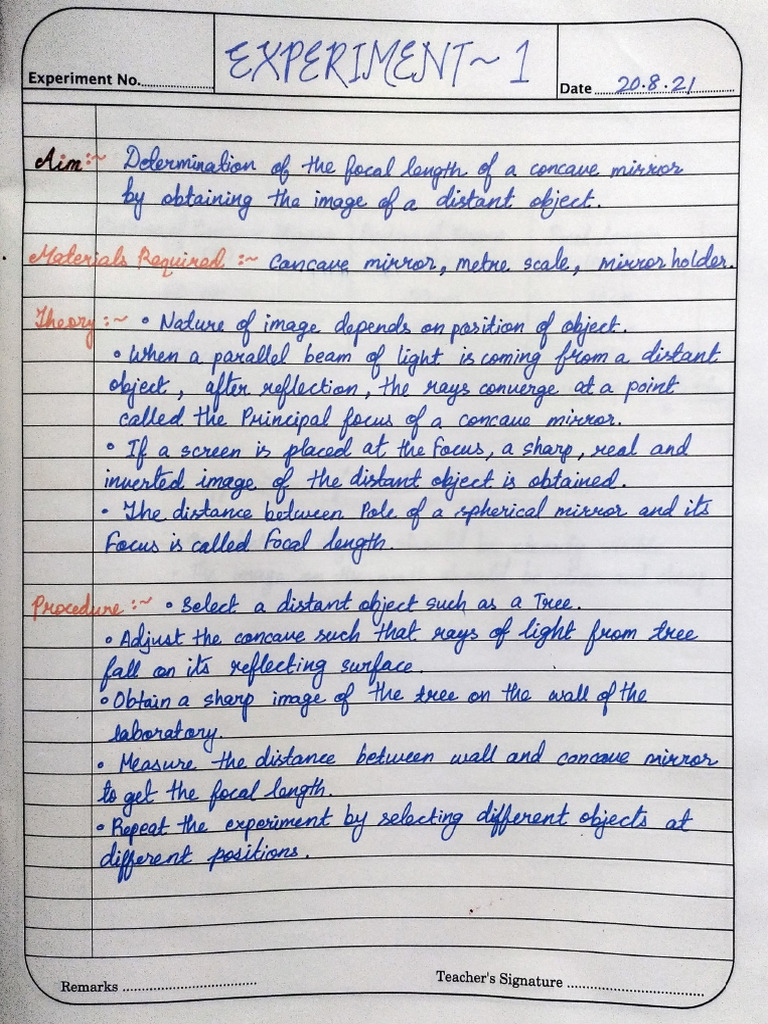 EXPERIMENT~ 1
Experiment No.................
Date ....20.8.21....
Aim:~ Determination of the focal length of a concave mirror
by obtaining the image of a distant object.
Materials Required :~ Concave mirror, metre scale, mirror holder.
Theory:~ • Nature of image depends on position of object.
• When a parallel beam of light is coming from a distant
object, after reflection, the rays converge at a point
called the Principal focus of a concave mirror.
• If a screen is placed at the Focus, a sharp, real and
inverted image of the distant object is obtained.
• The distance between Pole of a spherical mirror and its
Focus is called Focal length.
Procedure :~ • Select a distant object such as a Tree.
• Adjust the concave such that rays of light from tree
fall on its reflecting surface.
• Obtain a sharp image of the tree on the wall of the
laboratory.
• Measure the distance between wall and concave mirror
to get the focal length.
• Repeat the experiment by selecting different objects at
different positions.
Remarks ................................
Teacher's Signature ................................